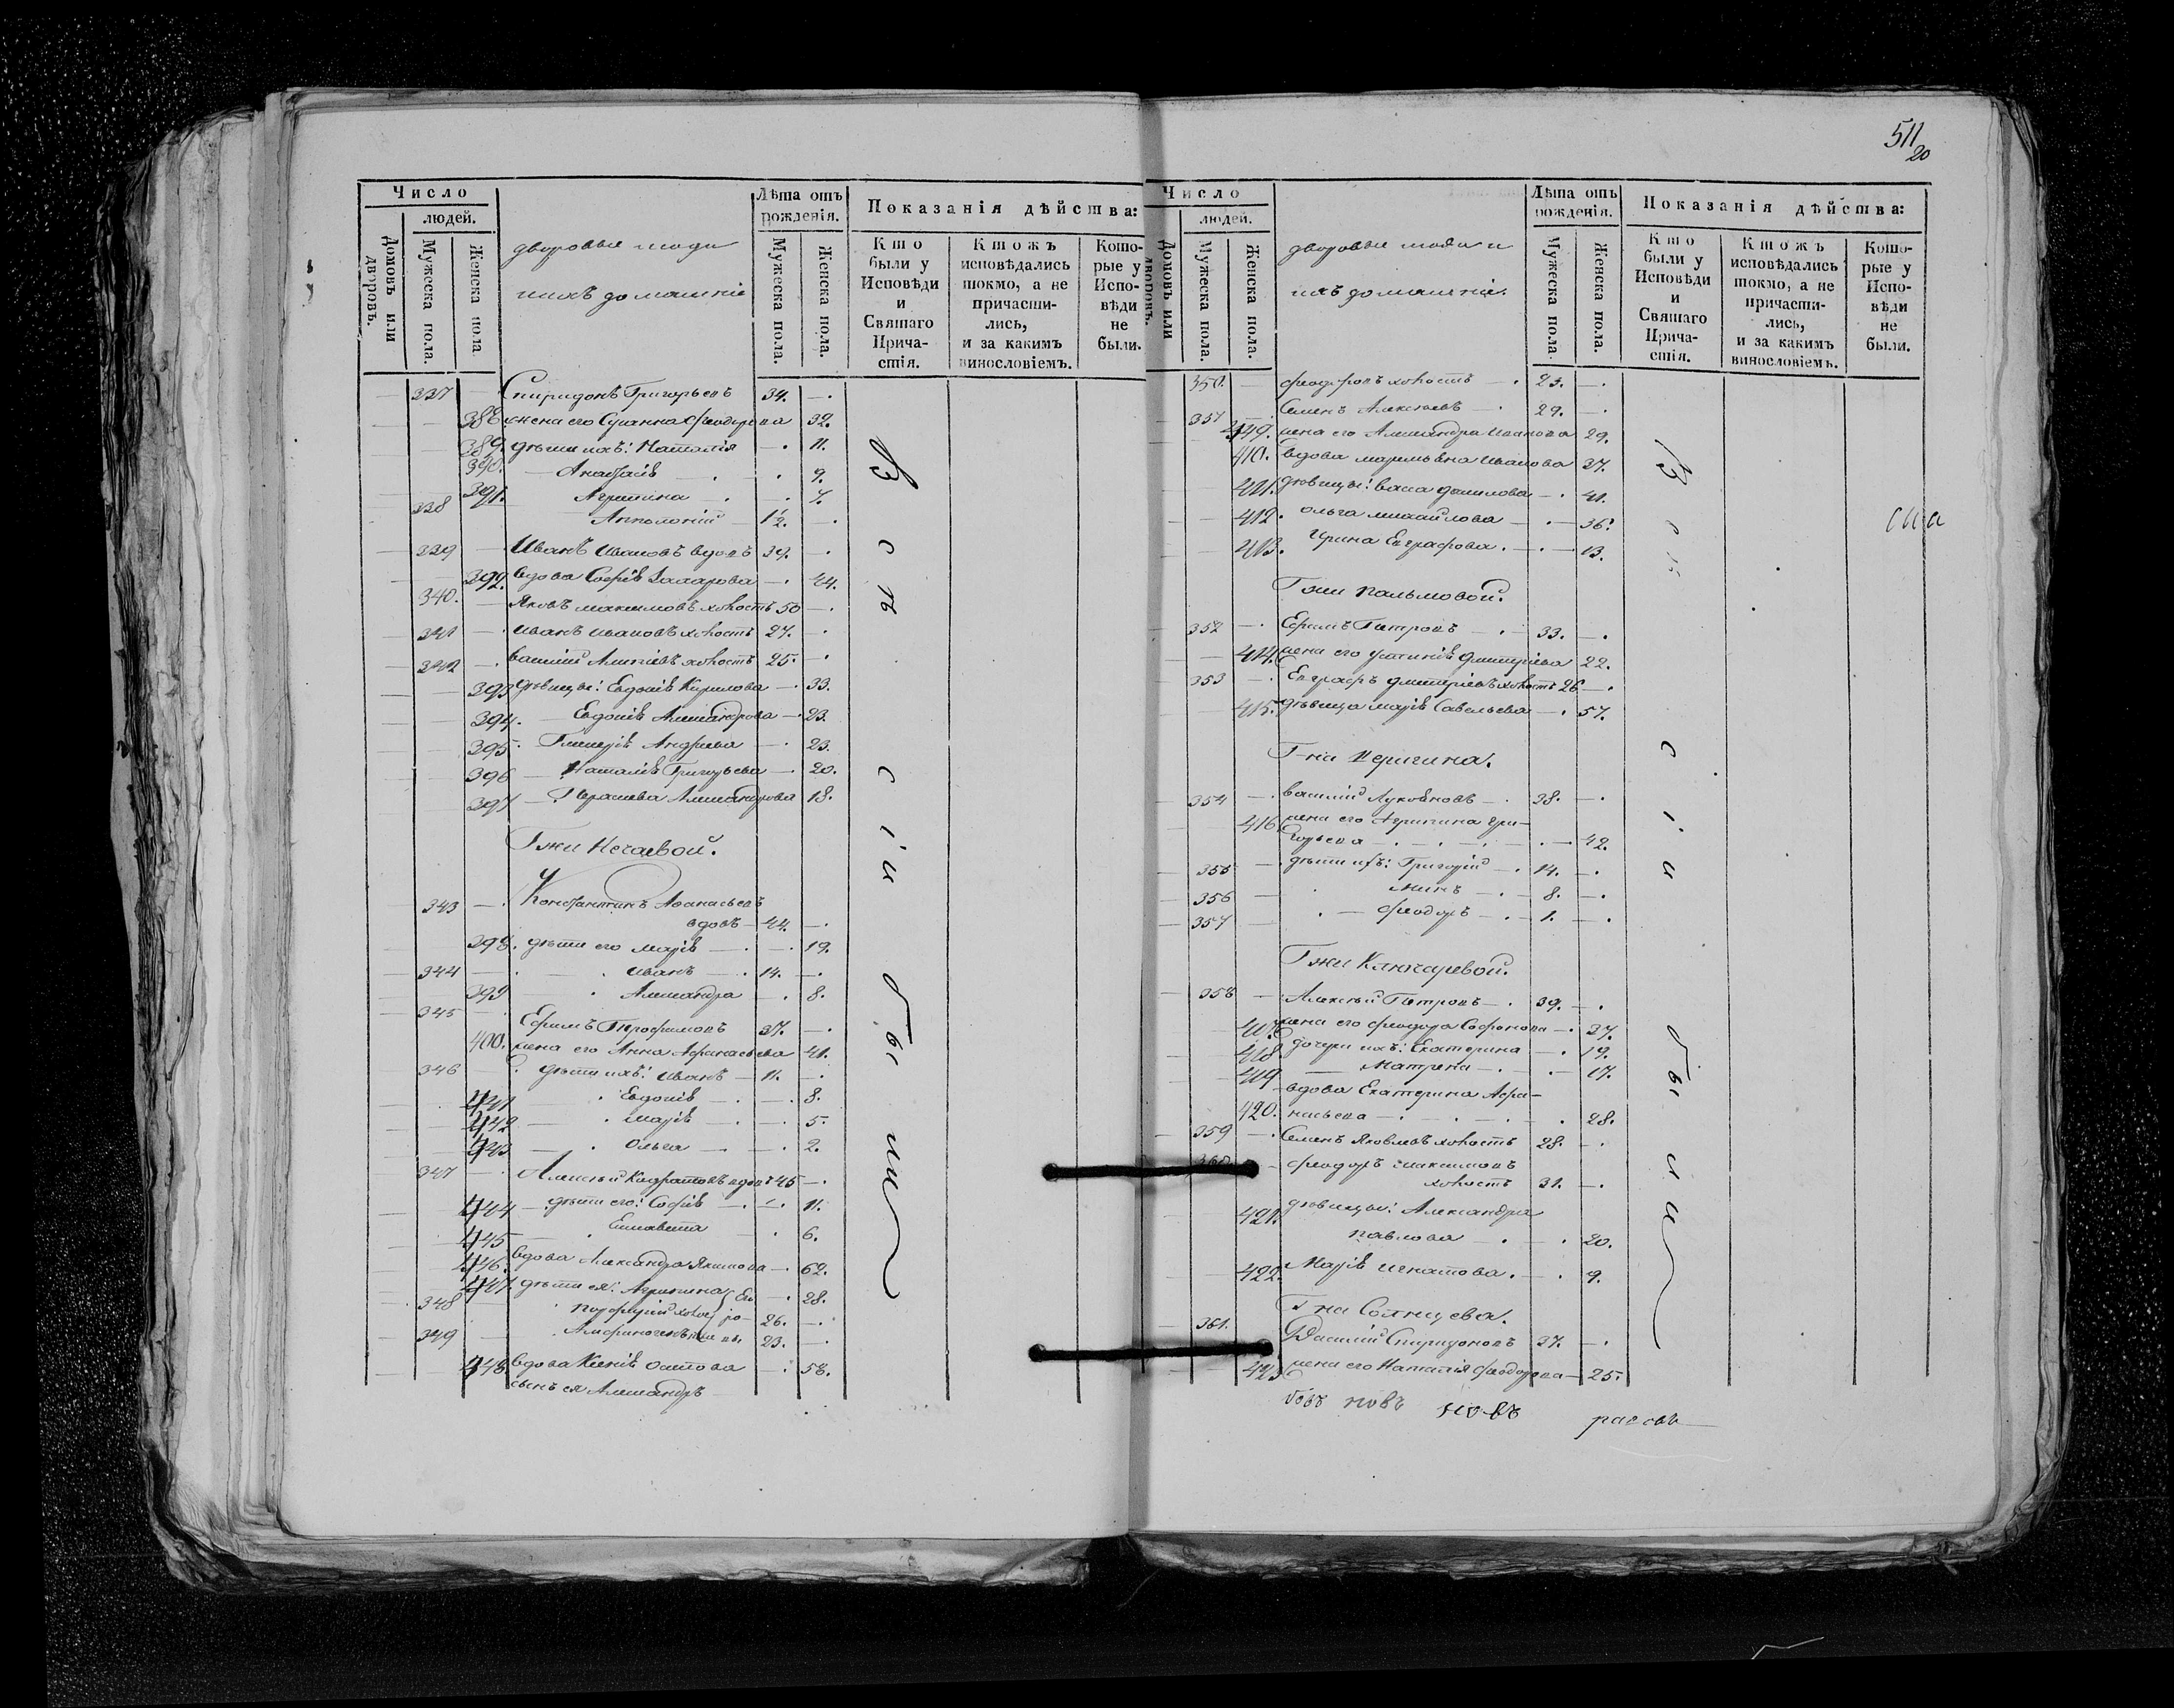 511
20
Число
людей.
Домовъ или дворовъ.
Мужеска пола.
Женска пола.
дворовые люди
ихъ домашніе
Лѣта отъ рожденія.
Мужеска пола.
Женска пола.
Показанія дѣйства:
Кто были у Исповѣди и Святаго Причастія.
Ктожъ исповѣдались токмо, а не причастились, и за какимъ винословіемъ.
Которые у Исповѣди не были.
337 — Спиридонъ Григорьевъ 34. —
388 жена его Сусанна Феодорова 32.
389. дѣти ихъ: Наталія — 11.
390. Анастасія 9.
391. Агрипина 7.
338 Апполоній 1½. —
339 — Иванъ Ивановъ вдовъ 39. —
392. вдова Софія Захарова — 44.
340. — Яковъ Максимовъ холостъ 50 —
341 — Иванъ Ивановъ холостъ 27. —
342 — Василій Алексіевъ холостъ 25. —
393 дѣвицы: Евдокія Кирилова — 33.
394. Евдокія Александрова — 23.
395. Гликерія Андреева — 23.
396 — Наталія Григорьева — 20.
397 — Параскева Александрова 18.
Гжи Нечаевой.
343 — Константинъ Афанасьевъ
вдовъ 44. —
398. дѣти его Марія — 19.
344 — Иванъ — 14. —
399 Александра — 8.
345 — Ефимъ Трофимовъ 37. —
400. жена его Анна Афанасьева 41.
346 дѣти ихъ: Иванъ — 11. —
401 Евдокія — 8.
402 Марія — 5.
403 Ольга — 2.
347 — Алексѣй Кодратовъ вдовъ 45 —
404 — дѣти его: Софія — 11.
405 Елисавета 6.
406. вдова Александра Якимова — 62.
407. дѣти ея: Агрипина — 28.
348 Порфирій 26. —
349 23. —
408 вдова Ксенія — 58.
сынъ ея Александръ
въ
с
въ
с
і
и
бы
ли
Число
людей.
Домовъ или дворовъ.
Мужеска пола.
Женска пола.
дворовые люди и
ихъ домашніе.
Лѣта отъ рожденія.
Мужеска пола
Женска пола.
Показанія дѣйства:
Кто были у Исповѣди и Святаго Причастія.
Ктожъ исповѣдались токмо, а не причастились, и за какимъ винословіемъ.
Которые у Исповѣди не были.
350. — холостъ — 23. —
351 Семенъ Алексѣевъ — 29. —
409. жена его Александра Иванова 29.
410. вдова Иванова 37.
411. дѣвицы: Васса Данилова — 41.
412. Ольга Михайлова — 36.
413. Ирина Евграфова. — 13.
Гжи Пальмовой.
352 — Ефимъ Петровъ — 33. —
414. жена его Устинія Дмитріева 22.
353 — Евграфъ Дмитріевъ холостъ 26 —
415. дѣвица Марія Савельева — 57.
Г-на Чернгина.
354 — Василій Лукояновъ — 38. —
416 жена его Агрипина Гри-
горьева — 42.
355 — дѣти ихъ: Григорій — 14. —
356 — Минъ — 8. —
357 — Феодоръ — 1. —
Гжи Ключаревой.
358 — Алексѣй Петровъ — 39. —
417. жена его Феодора Софонова — 37.
418. дочери ихъ: Екатерина — 19.
419 — Матрена — 17.
вдова Екатерина Афа-
420. насьева — 28.
359 — Семенъ Яковлевъ холостъ 28. —
360 — Феодоръ Максимовъ
холостъ 31. —
421. дѣвицы: Александра
Павлова — 20.
422. Марія Игнатова. — 9.
Гна Солнцева.
361. Василій Спиридоновъ 37. —
423 жена его Наталія Феодорова — 25.
с
і
и
бы
ли
новъ новъ